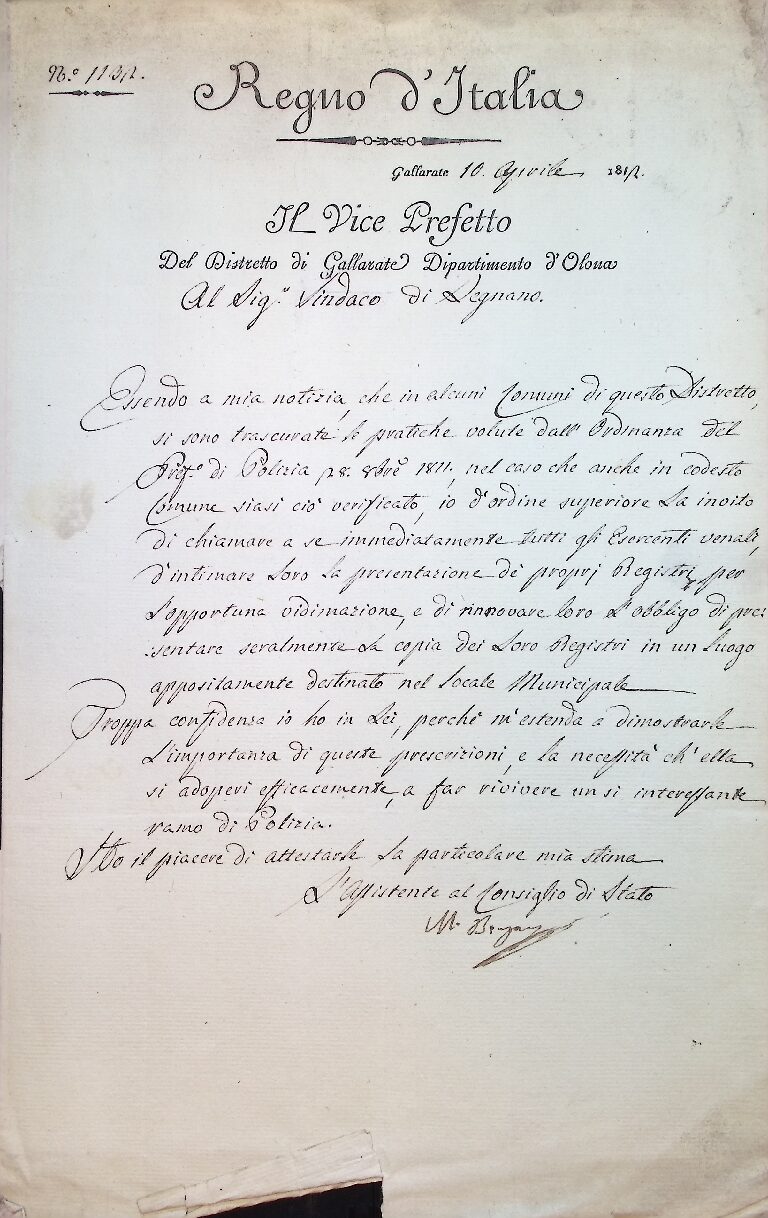 N.° 1132.
Regno d'Italia
Gallarate 10. Aprile 1812.
Il Vice Prefetto
Del Distretto di Gallarate Dipartimento d'Olona
Al Sig.r Sindaco di Legnano.
Essendo a mia notizia, che in alcuni Comuni di questo Distretto,
si sono trascurate le pratiche volute dall'Ordinanza del
Pref.o di Polizia 28. 8bre 1811, nel caso che anche in codesto
Comune siasi ciò verificato, io d'ordine superiore La invito
di chiamare a se immediatamente tutti gli Esercenti venali,
d'intimare Loro la presentazione de proprj Registri per
l'opportuna vidimazione, e di rinnovare loro l'obbligo di pre:
:sentare seralmente La copia dei Loro Registri in un Luogo
appositamente destinato nel Locale Municipale
Troppa confidenza io ho in Lei, perchè m'estenda a dimostrarle
L'importanza di queste prescrizioni, e la necessità ch'ella
si adoperi efficacemente, a far rivivere un si interessante
ramo di Polizia.
Ho il piacere di attestarle La particolare mia stima
L'Assistente al Consiglio di Stato